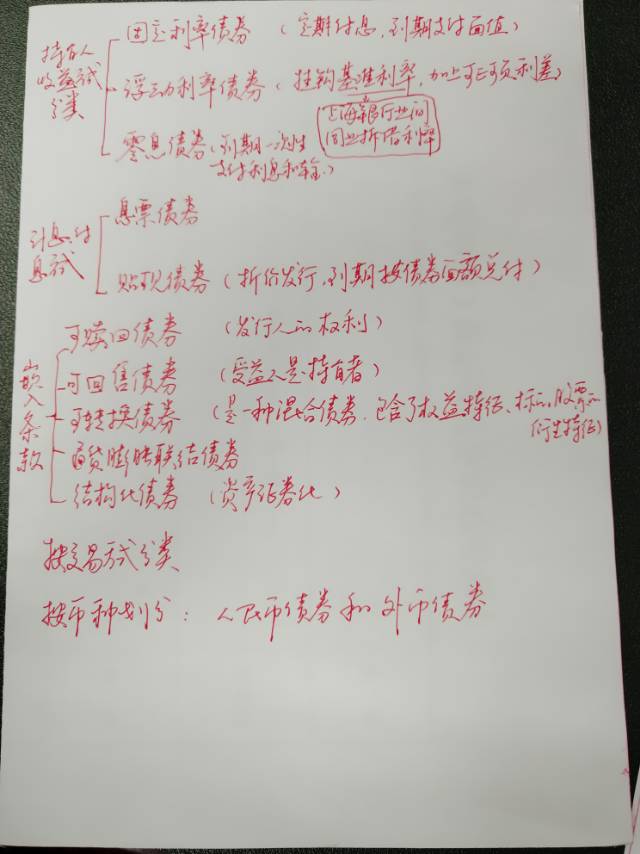 持有人
收益方式
分类
固定利率债券 (定期付息,到期支付面值)
浮动利率债券 (挂钩基准利率,加上可正可负利差)
上海银行业间
同业拆借利率
零息债券 (到期一次性
支付利息和本金.)
计息付
息方式
息票债券
贴现债券 (折价发行,到期按债券面额兑付)
嵌入条款
可赎回债券 (发行人的权利)
可回售债券 (受益人是持有者)
可转换债券 (是一种混合债券.包含了权益特征、标的股票的
衍生特征)
通货膨胀联结债券
结构化债券 (资产证券化)
按交易方式分类
按币种划分: 人民币债券和外币债券